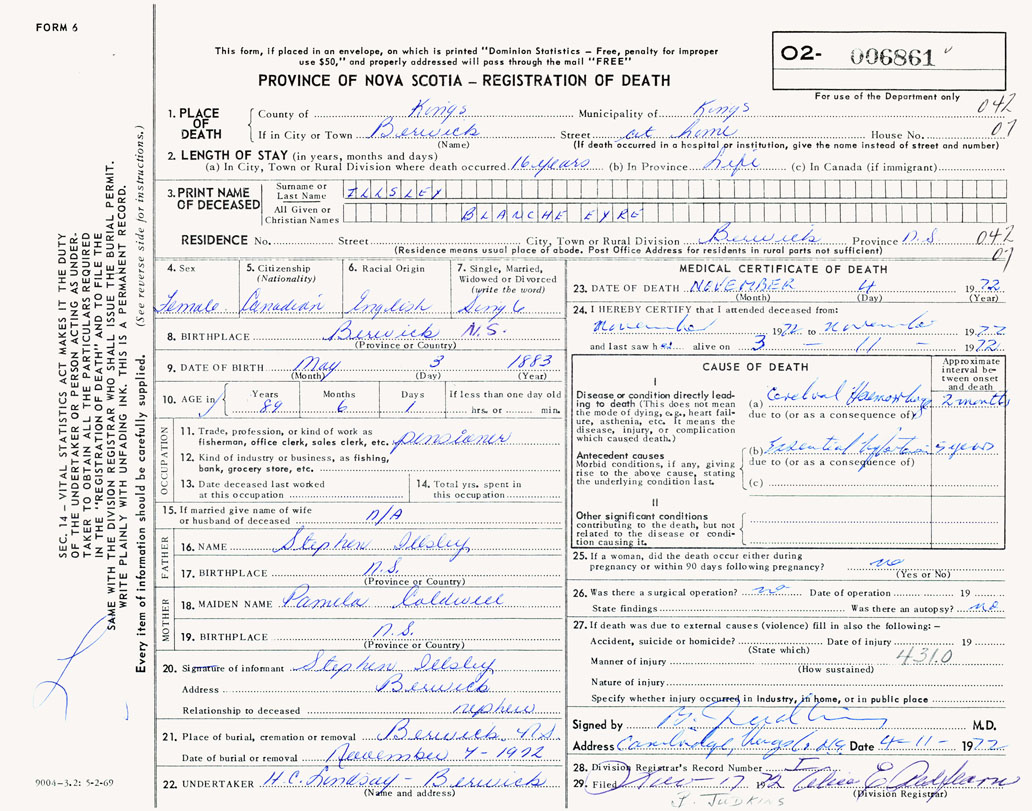 FORM 6
This form, if placed in an envelope, on which is printed "Dominion Statistics – Free, penalty for improper
use $50," and properly addressed will pass through the mail "FREE"
PROVINCE OF NOVA SCOTIA – REGISTRATION OF DEATH
O2- 006861
For use of the Department only
042
07
SEC. 14 – VITAL STATISTICS ACT MAKES IT THE DUTY
OF THE UNDERTAKER OR PERSON ACTING AS UNDER-
TAKER TO OBTAIN ALL THE PARTICULARS REQUIRED
IN THE "REGISTRATION OF DEATH" AND TO FILE THE
SAME WITH THE DIVISION REGISTRAR WHO SHALL ISSUE THE BURIAL PERMIT.
WRITE PLAINLY WITH UNFADING INK. THIS IS A PERMANENT RECORD.
Every item of information should be carefully supplied. (See reverse side for instructions.)
1. PLACE OF DEATH
County of Kings Municipality of Kings
If in City or Town Berwick Street at home House No.
(Name) (If death occurred in a hospital or institution, give the name instead of street and number)
2. LENGTH OF STAY (in years, months and days)
(a) In City, Town or Rural Division where death occurred 16 years (b) In Province Life (c) In Canada (if immigrant)
3. PRINT NAME OF DECEASED
Surname or Last Name ILLSLEY
All Given or Christian Names BLANCHE EYRE
RESIDENCE No. Street City, Town or Rural Division Berwick Province N.S. 042
(Residence means usual place of abode. Post Office Address for residents in rural parts not sufficient) 07
4. Sex Female
5. Citizenship (Nationality) Canadian
6. Racial Origin English
7. Single, Married, Widowed or Divorced (write the word)
8. BIRTHPLACE Berwick N.S.
(Province or Country)
9. DATE OF BIRTH May 3 1883
(Month) (Day) (Year)
10. AGE in Years 89 Months 6 Days 1 If less than one day old hrs. or min.
OCCUPATION
11. Trade, profession, or kind of work as
fisherman, office clerk, sales clerk, etc. pensioner
12. Kind of industry or business, as fishing,
bank, grocery store, etc.
13. Date deceased last worked
at this occupation
14. Total yrs. spent in
this occupation
15. If married give name of wife
or husband of deceased N/A
FATHER
16. NAME Stephen Illsley
17. BIRTHPLACE N.S.
(Province or Country)
MOTHER
18. MAIDEN NAME Pamela Coldwell
19. BIRTHPLACE N.S.
(Province or Country)
20. Signature of informant Stephen Illsley
Address Berwick
Relationship to deceased nephew
21. Place of burial, cremation or removal Berwick, N.S.
Date of burial or removal November 7 - 1972
22. UNDERTAKER H.C. Lindsay - Berwick
(Name and address)
9004–3.2: 5-2-69
MEDICAL CERTIFICATE OF DEATH
23. DATE OF DEATH NOVEMBER 4 1972
(Month) (Day) (Year)
24. I HEREBY CERTIFY that I attended deceased from:
November 1972 to November 1972
and last saw her alive on 3 - 11 - 1972
CAUSE OF DEATH
Approximate
interval be-
tween onset
and death
I
Disease or condition directly lead-
ing to death (This does not mean
the mode of dying, e.g., heart fail-
ure, asthenia, etc. It means the
disease, injury, or complication
which caused death.)
(a) Cerebral Haemorrhage 2 months
due to (or as a consequence of)
Antecedent causes
Morbid conditions, if any, giving
rise to the above cause, stating
the underlying condition last.
(b) Essential hypertension 5 years
due to (or as a consequence of)
(c)
II
Other significant conditions
contributing to the death, but not
related to the disease or condi-
tion causing it.
25. If a woman, did the death occur either during
pregnancy or within 90 days following pregnancy? no
(Yes or No)
26. Was there a surgical operation? no Date of operation 19
State findings Was there an autopsy? no
27. If death was due to external causes (violence) fill in also the following: –
Accident, suicide or homicide? Date of injury 19
(State which)
Manner of injury 4310
(How sustained)
Nature of injury
Specify whether injury occurred in Industry, in home, or in public place
Signed by M.D.
Address Cambridge, Kings Co. NS Date 4-11-1972
28. Division Registrar's Record Number
29. Filed Nov 17 1972
(Division Registrar)
J. JUDKINS